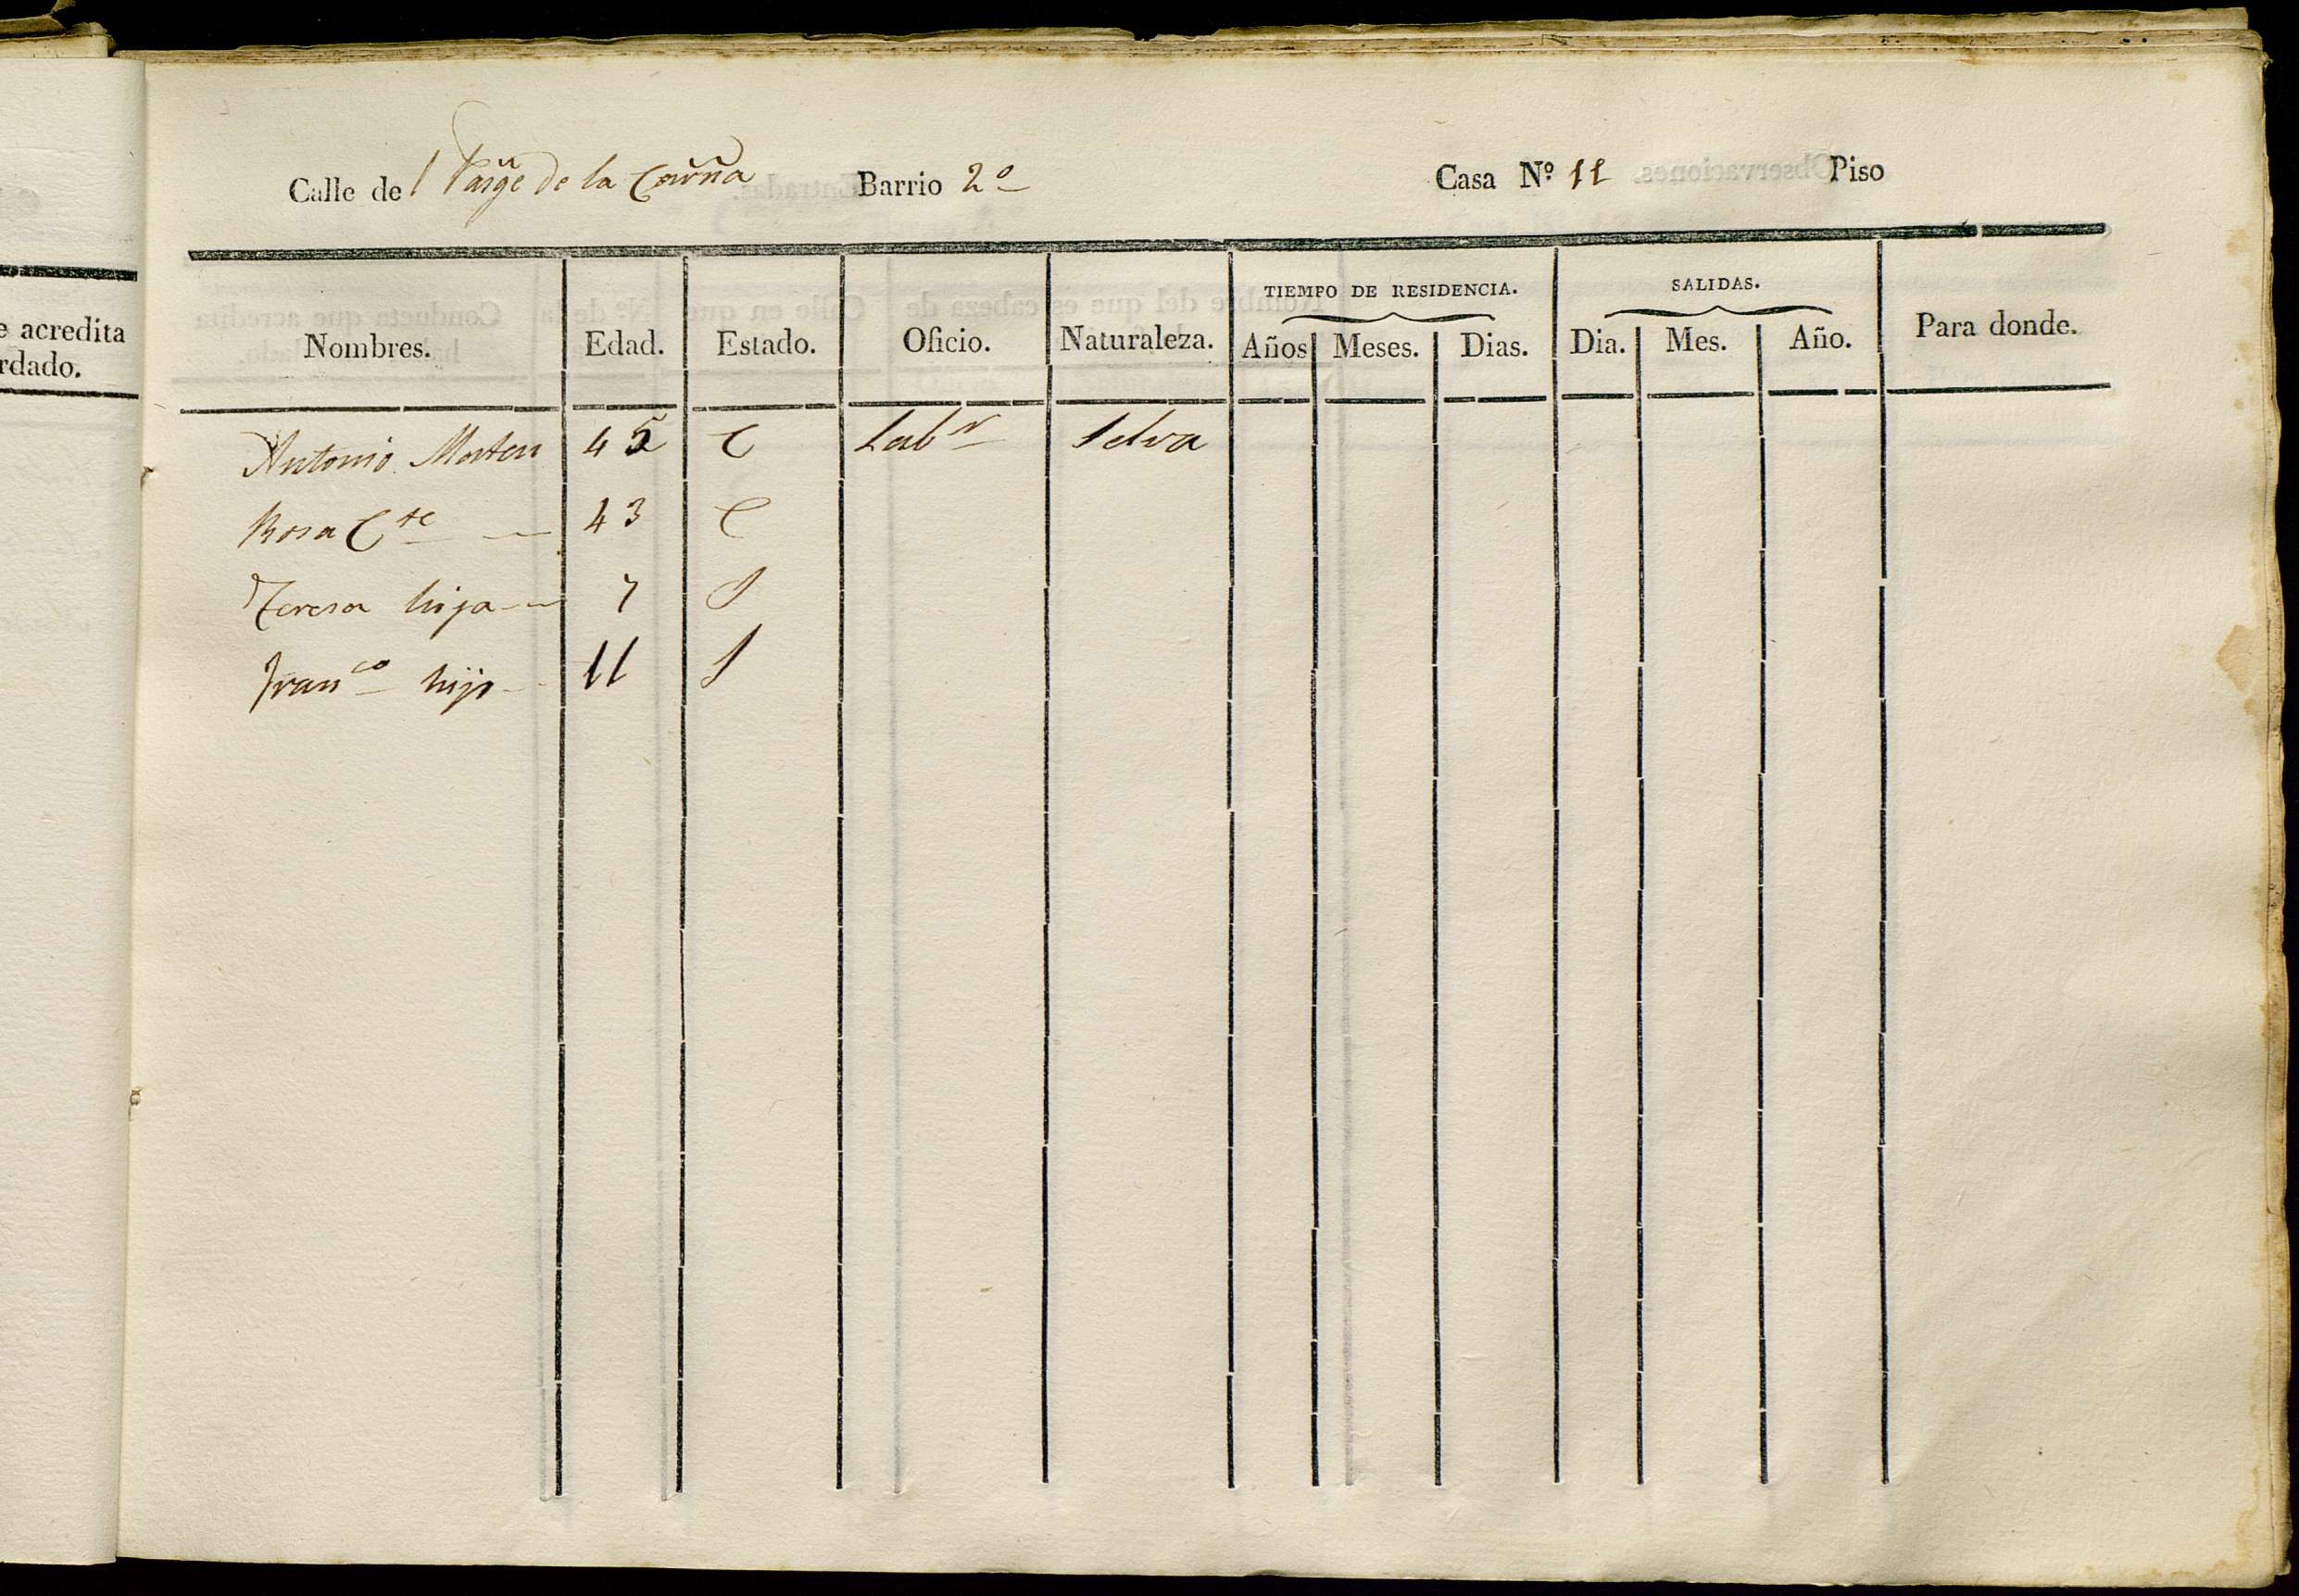 e acredita
rdado.
Calle del de la Barrio 2º Casa Nº 11 Piso
TIEMPO DE RESIDENCIA. SALIDAS.
Nombres. Edad. Estado. Oficio. Naturaleza. Años Meses. Dias. Dia. Mes. Año. Para donde.
Antonio 45 C Labr Selva
Rosa Cte 43 C
Teresa hija 7 S
Franco hijo 11 S